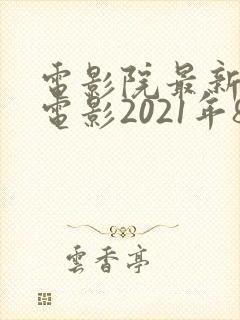 電影院最新
電影2021年8
雲香亭